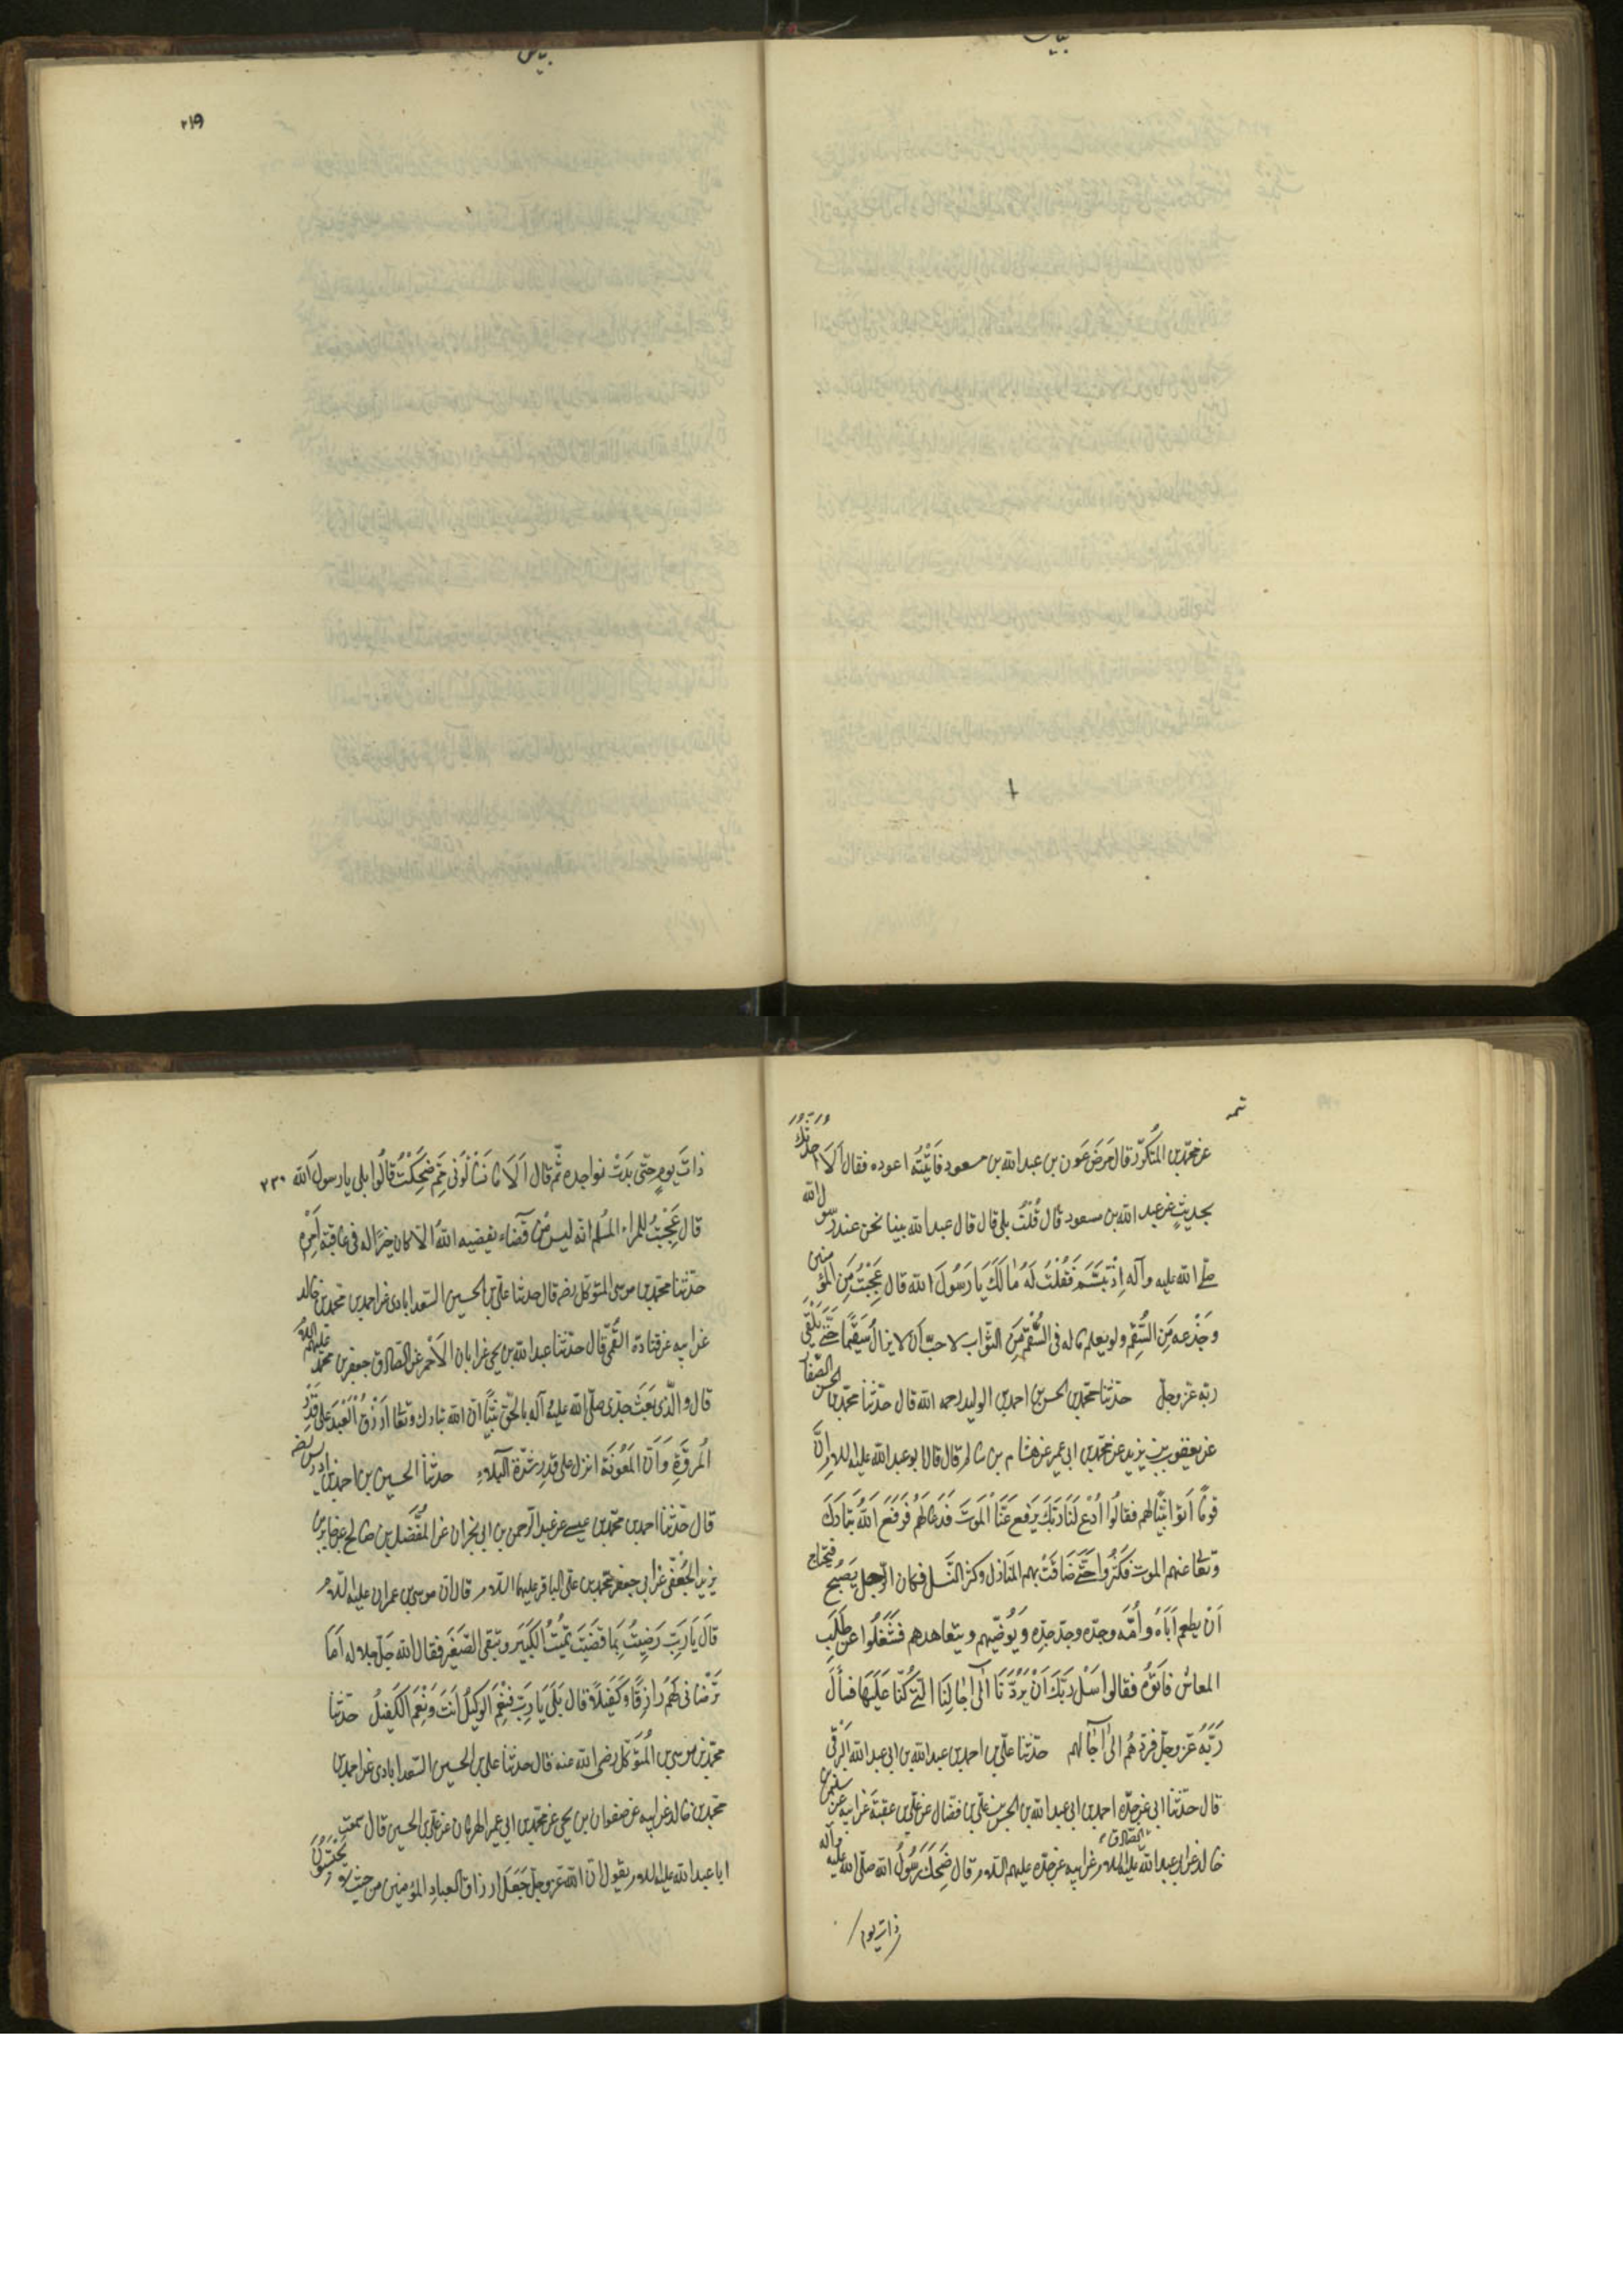 بياض
بياض
۲۱۹
تمه
عن محمد بن المنكدر قال مَرِضَ عَون بن عبدالله بن مسعود فَاَتَيْتُه اعوده فقال اَلَا اُحَدِّثُكَ
بحديثٍ عن عبد الله بن مسعود قال قُلْتُ بلى قال قال عبدالله بينا نحن عند رسول الله
صلى الله عليه وآله اِذْ تَبَسَّمَ فَقُلْتُ لَهُ مٰا لَكَ يَا رَسُولَ الله قال عَجِبْتُ مِنَ المُؤمنِ
وجَزَعه مِنَ السُّقْمِ ولو يعلم ما له فى السُّقْمِ مِنَ الثّواب لاحبّ ان لا يزالَ سَقيمًا حَتّى يَلْقى
ربه عز وجل حدّثنا محمّد بن الحسن بن احمد بن الوليد رحمه الله قال حدّثنا محمّد بن الحسن الصّفار
عن يعقوب بن يزيد عن محمد بن ابى عمير عن هشام بن سالم قال قال ابو عبدالله عليه السلام اِنَّ
قومًا اَتوا نَبِيًّا لهم فقالُوا اُدْعُ لَنَا رَبَّكَ يَرْفع عَنَّا الْمَوتَ فَدَعَا لَهُمْ فَرَفَعَ اللهُ تَبَارَكَ
وتعٰا عنهم الموت فَكَثُرُوا حَتّى ضَاقَتْ بهم المَنَازل وكثر النَّسل فكان الرّجل يَصْبح فيحتاج
اَنْ يطعم اَباهُ واُمَّه وجدّه وجدّ جدِّه وَيُوضّيهم ويتعاهدهم فَشَغَلُوا عن طَلَبِ
المعاش فاَتَوْه فقالوا سَلْ رَبَّكَ اَنْ يَرُدَّنَا اِلٰى اٰجٰالِنَا الّتى كُنّا عَلَيْهَا فسألَ
رَبَّهُ عَزّ وجلّ فَردّهُمْ الى اٰجٰالهم حدّثنا علىّ بن احمد بن عبدالله بن ابى عبدالله البَرْقى
قال حدّثنا ابى عن جدّه احمد بن ابى عبدالله عن الحسن بن علىّ بن فضال عن علىّ بن عقبَة عن ابيه عن سليمٰن
خالد عن ابى عبدالله الصّادق عليه السلام عن ابيه عن جدّه عليهم السلام قال ضَحِكَ رَسُولُ الله صلّى الله عليه وآله
ذات يوم
۲۲۰
ذاتَ يومٍ حتى بدَتْ نواجده ثم قال اَلَا تَسْألُونى مِمَّ ضَحِكْتُ قالُوا بلى يا رسولَ الله
قال عَجِبْتُ للمراء المُسلم انه ليس مِن قَضاء يقضيه اللهُ الّا كان خيرًا له فى عاقبة اَمْرِه
حدّثنا محمّد بن موسى المتوكّل رضه قال حدثنا علىّ بن الحسين السّعدابادى عن احمد بن محمّد بن خالد
عن ابيه عن قتادة القُمّى قال حدّثنا عبدالله بن يحيى عن ابان الاَحْمر عن الصّادق جعفر بن محمّد عليهم السّلام
قال والّذى بَعَثَ جدّى صلّى الله عليه وآله بالحقّ نَبِيًّا ان الله تبارك وتعٰا لَيَرْزُقُ الْعَبْدَ عَلى قَدْرِ
المُروّة وَاَنّ المَعُونَة انزل على قدر شدّة البَلاء حدثنا الحسين بن احمد بن ادريس رضه
قال حدّثنا احمد بن محمّد بن عيسى عن عبد الرّحمن بن ابى نجران عن المُفَضّل بن صالح عن جابر بن
يزيد الجُعْفى عن ابى جعفر محمّد بن علىّ الباقر عليهما السّلام قال ان موسى بن عمران عليه السّلام
قالَ يَا رَبّ رَضِيتُ بِمَا قَضَيْتَ تُميْتُ الكَبِيرَ وتبقى الصّغيرَ فقال الله جَلّ جلاله اَمَا
تَرْضانى لَهُمْ رَازِقًا وَكَفيلًا قال بَلَى يَا رَبّ فَنِعْمَ الوَكيلُ اَنتَ وَنِعْمَ الكَفيلُ حدّثنا
محمّد بن موسى بن المُتوكّل رضى الله عنه قال حدثنا على بن الحسين السّعدابادى عن احمد بن
محمّد بن خالد عن ابيه عن صفوان بن يحيى عن محمّد بن ابى عمير الهزهان عن علىّ بن الحسين قال سمعت
ابا عبدالله عليه السلام يقول انّ الله عزّ وجلّ جَعَلَ ارزاق العبادِ المؤمنين من حيث لا يَحْتَسِبُونَ